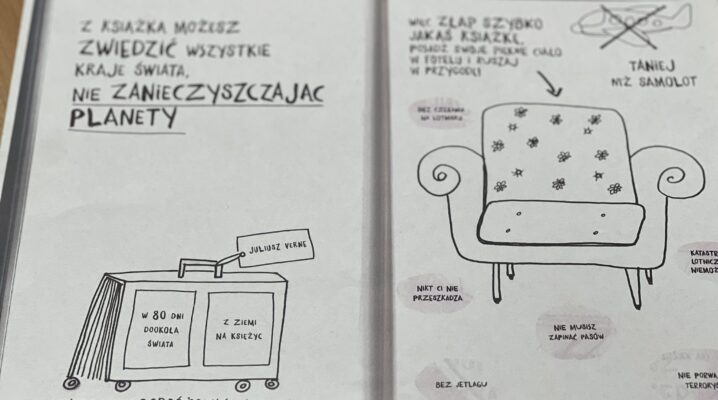 Z KSIĄŻKĄ MOŻESZ
ZWIEDZIĆ WSZYSTKIE
KRAJE ŚWIATA,
NIE ZANIECZYSZCZAJĄC
PLANETY
JULIUSZ VERNE
W 80 DNI
DOOKOŁA
ŚWIATA
Z ZIEMI
NA KSIĘŻYC
WIĘC ZŁAP SZYBKO
JAKĄŚ KSIĄŻKĘ,
POSADŹ SWOJE PIĘKNE CIAŁO
W FOTELU I RUSZAJ
W PRZYGODĘ!
TANIEJ
NIŻ SAMOLOT
BEZ CZEKANIA
NA LOTNISKU
NIKT CI NIE
PRZESZKADZA
NIE MUSISZ
ZAPINAĆ PASÓW
BEZ JETLAGU
KATASTR
LOTNICZ
NIEMOŻ
NIE PORWĄ
TERRORYŚ